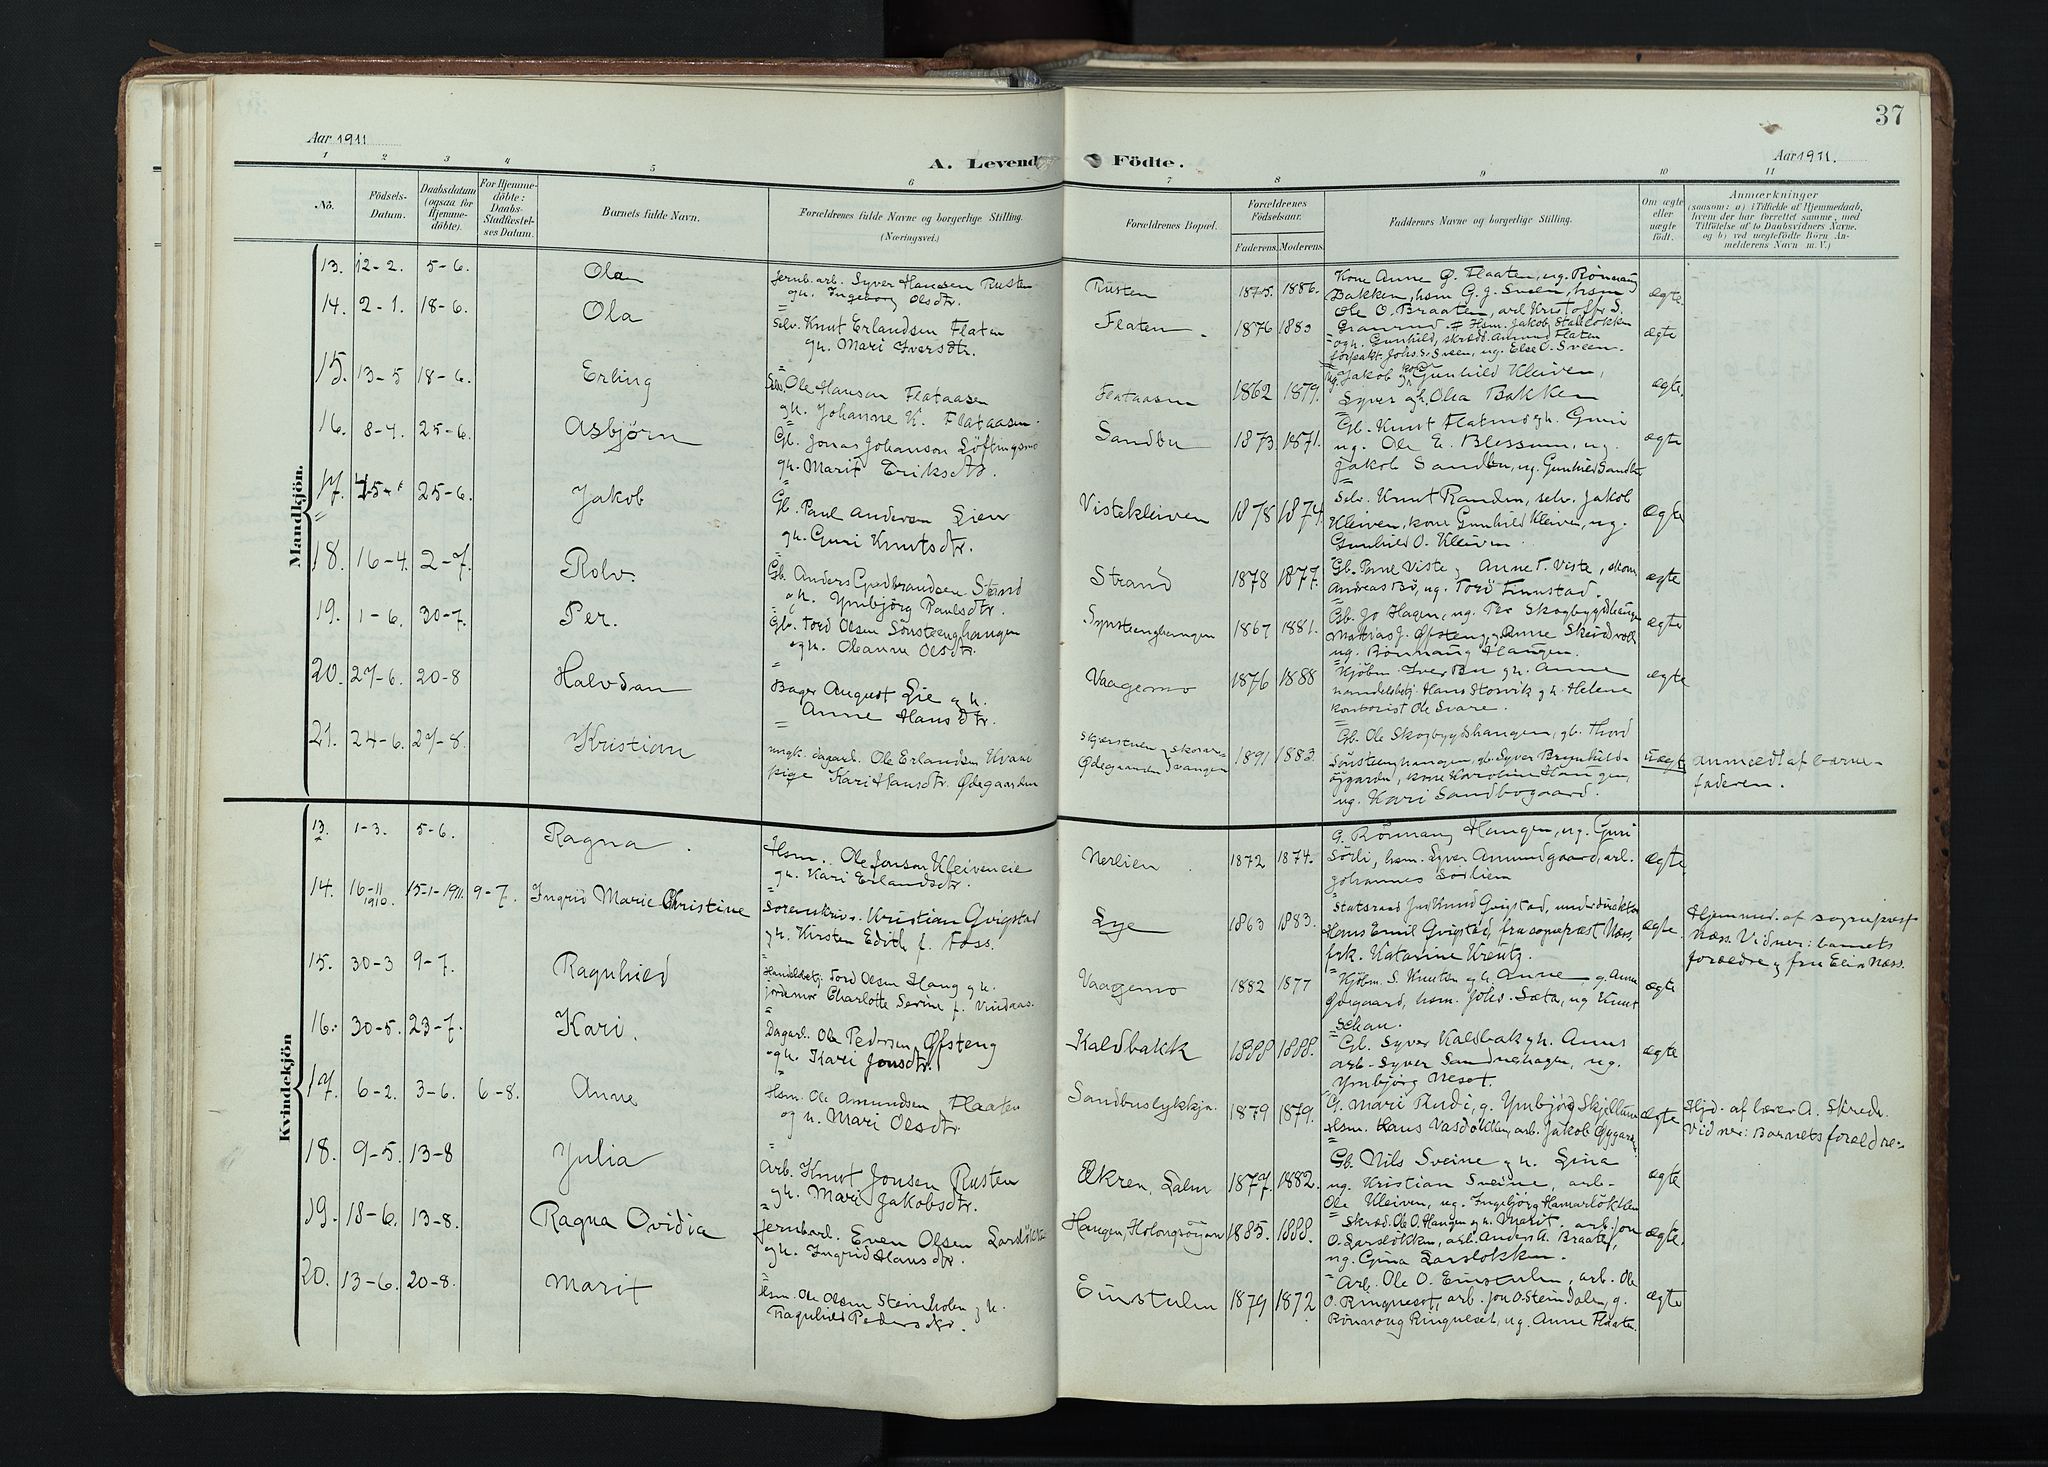 37
Aar 1911
A. Levende Födte.
Aar 1911.
1 2 3 4 5 6 7 8 9 10 11
No.
Födsels-
Datum.
Daabsdatum
(ogsaa for
Hjemme-
döbte).
For Hjemme-
döbte:
Daabs-
Stadfæstel-
ses Datum.
Barnets fulde Navn.
Forældrenes fulde Navne og borgerlige Stilling.
(Næringsvei.)
Forældrenes Bopæl.
Forældrenes
Födselsaar.
Faderens. Moderens.
Faddernes Navne og borgerlige Stilling.
Om ægte
eller
uægte
födt.
Anmærkninger
saasom: a) i Tilfælde af Hjemmedaab,
hvem der har forrettet samme, med
Tilföielse af to Daabsvidners Navne,
og b) ved uægtefödte Börn An-
melderens Navn m. V.)
Mandkjön.
13. 12-2. 5-6. Ola
Jernb.arb. Syver Hansen Rusten
gh. Ingeborg Olsdtr.
Rusten 1875. 1886.
Kone Anne O. Flaaten, ug. Rønnaug
Bakken, hsm G. J. Sveen, hsm
Ole O. Braaten, arb. Kristoffr S.
ægte
14. 2-1. 18-6. Ola
Selv. Knut Erlandsen Flaten
gh. Mari Iversdtr.
Flaten 1876 1883
Granrud. Hsm. Jakob Stalløkken
ogh. Gunhild, skrædd. Amund Flaten
Johs. S. Sveen, ug. Else O. Sveen.
ægte
15. 13-5 18-6. Erling
Selv. Ole Hanson Flataasen
gh. Johanne K. Flataasen.
Flataasen 1862 1879.
Jakob gk. Gunhild Kleiven,
Syver gh. Olea Bakken
ægte.
16. 8-4. 25-6. Asbjörn
Gb. Jonas Johanson Løftingsmo
gh. Marit Eriksdtr.
Sandbu 1873 1871.
Gb. Knut Flatmo gh. Guri
ug. Ole E. Blessum, ug.
Jakob Sandbu, ug. Gunhild Sandbu
ægte
17. 25-6. Jakob
Gb. Paul Andersen Lien
gh. Guri Knutsdtr.
Vistekleiven 1878 1874.
Selv. Knut Randen, selv. Jakob
Kleiven, kone Gunhild Kleiven, ug.
Gunhild O. Kleiven.
ægte
18. 16-4. 2-7. Rolv.
Gb. Anders Gudbrandsen Strand
gh. Ymbjörg Paulsdtr.
Strand 1878 1877.
Gb. Paul Viste g Anne T. Viste, skom
Andreas Bø, ug. Tori Finnstad.
ægte
19. 1-6. 30-7. Per.
Gb. Tord Olsen Sønsteenghaugen
ogh. Oleanne Olsdtr.
Synsteenghaugen 1867 1881.
Gb. Jo Hagen, ug. Per Skogbygdhaugen
Mathias J. Øfsteng, g. Anne Skeidvoll
ug. Rønnaug Haugen.
ægte
20. 27-6. 20-8 Halvdan
Bager August Lie g h.
Anne Hansdtr.
Vaagemo 1876 1888
Kjöbm. Iver Bu gh. Anne
handelsbetj. Hans Storvik gh. Helene
kontorist Ole Svare.
ægte
21. 24-6. 27-8. Kristian
ungk. dagarb. Ole Erlandsen Kvaal
pige Kari Hansdtr. Ødegaarden
Ødegaarden 1891 1883.
Gb. Ole Skogbygdshaugen, gb. Thord
Sønsteenghaugen, gb. Syver Brynhilds-
øygarden, kone Karoline Haugen,
ug. Kari Sandbogaard.
Uægt. anmeldt af barne-
faderen.
Kvindekjön
13. 1-3. 5-6. Ragna.
Hsm. Ole Jonson Kleiveneie
gh. Kari Erlandsdtr.
Nerlien 1872 1874.
G. Rönnaug Haugen, ug. Guri
Sörli, hsm. Syver Amundgaard, arb.
Johannes Sörlien
ægte
14. 16-11 1910. 15-1-1911. 9-7. Ingrid Marie Christine
Sorenskriv. Kristian Qvigstad
gh. Kirsten Edith f. Foss.
Lye 1863 1883.
Statsraad Just Knud Qvigstad, underdirektör
Hans Emil Qvigstad, fru sogneprest Næss,
frk. Katarine Kreutz.
ægte. Hjemmed. af sogneprest
Næss. Vidner: barnets
forældre g fru Elin Næss.
15. 30-3 9-7. Ragnhild
Handelsbetj. Tord Olsen Haug g h.
jordmor Charlotte Sevine f. Vindaas.
Vaagemo 1882 1877
Kjöbm. S. Knuten gh. Anne g. Anne
Øvregaard, hsm. Johs. Sæta, ug Knut
Schau.
ægte
16. 30-5. 23-7. Kari.
Dagarb. Ole Pedersen Øfsteng
ogh. Kari Jonsdtr.
Kaldbakk 1888 1888.
Gb. Syver Kaldbak gh. Anne
arb. Syver Sandnehagen, ug.
Ymbjörg Neset.
ægte
17. 6-2. 3-6. 6-8. Anne
Hsm. Ole Amundsen Flaaten
og h. Mari Olsdtr.
Sandbuslykkja. 1879 1879.
G. Mari Rudi, g. Ymbjörg Skjellum
Hsm. Hans Vasdokken, arb. Jakob Øygard
ægte Hjd. af lærer A. Skrede.
Vidner: Barnets forældre.
18. 9-5. 13-8 Julia
Arb. Knut Jonsen Rusten
gh. Mari Jakobsdtr.
Ekren, Lalm 1877. 1882.
Gb. Nils Sveine g h. Lina
ug. Kristian Sveine, arb.
Ole Kleiven, ug. Ingebjörg Hamarløkken
ægte
19. 18-6. 13-8. Ragna Ovidia
Jernbarb. Even Olsen Larsløkken
gh. Ingrid Hansdtr.
Haugen, Holongsöyan 1885. 1888.
Skræd. Ol. O. Haugen g h. Marit, arb. Jon
O. Larsløkken, arb. Anders A. Braaten,
ug. Gina Larsløkken.
ægte.
20. 13-6. 20-8. Marit
Hsm. Ole Olsen Steinholen g h.
Ragnhild Pedersdtr.
Einstulen 1879 1872
Arb. Ole O. Einstulen, arb. Ole
O. Ringneset, arb. Jon O. Steindalen, g.
Rønnoug Ringneset, ug. Anne Flaaten.
ægte